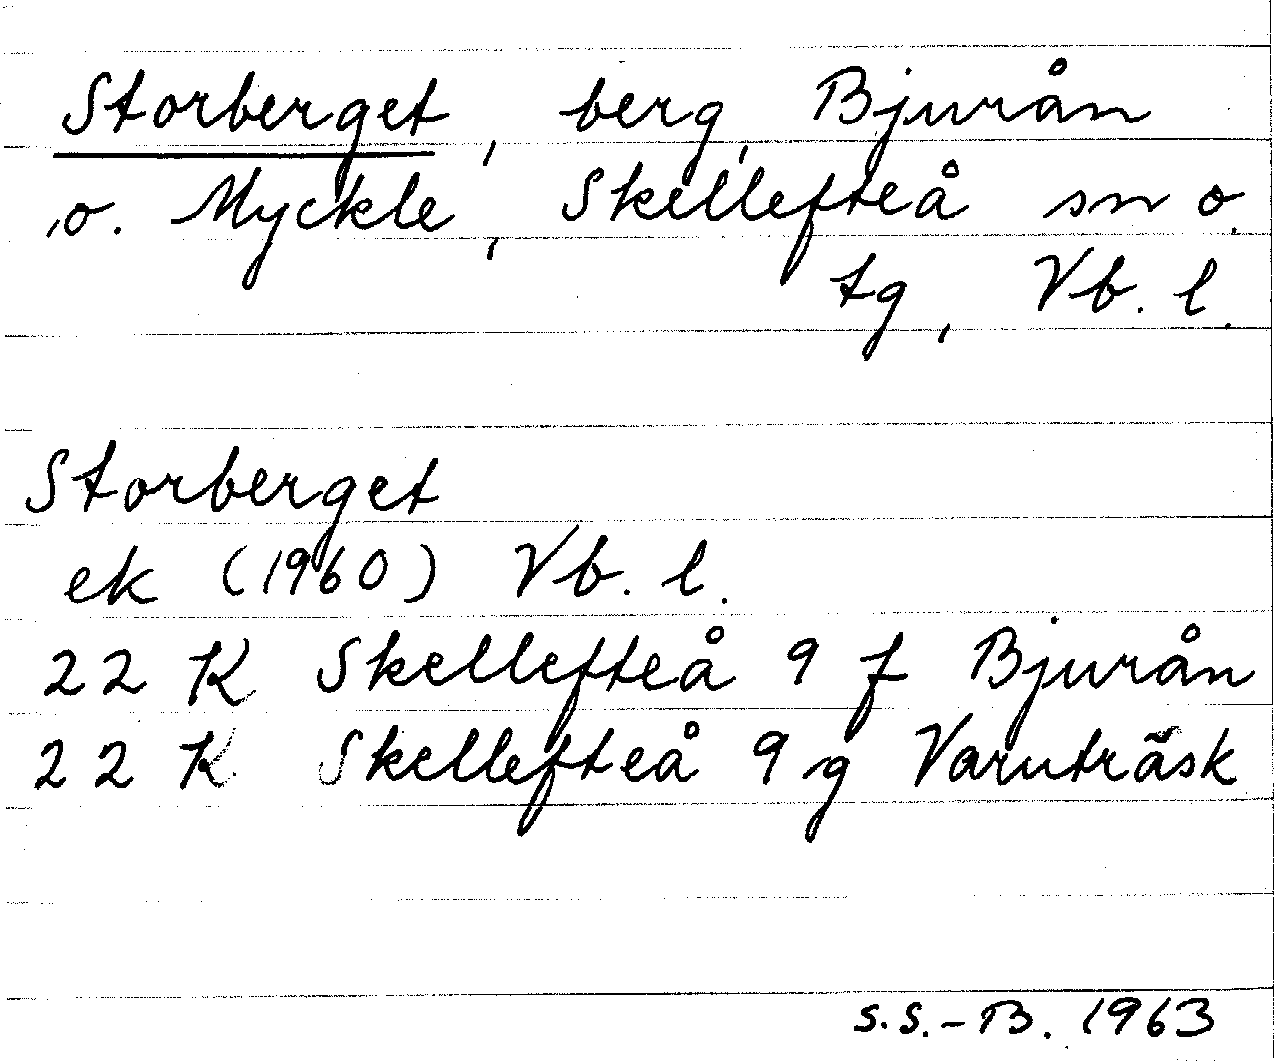 Storberget, berg, Bjurån
o. Myckle, Skellefteå sn o.
tg, Vb. l.
Storberget
ek (1960) Vb. l.
22 K Skellefteå 9 f Bjurån
22 K Skellefteå 9 g Varuträsk
S.S.-B. 1963